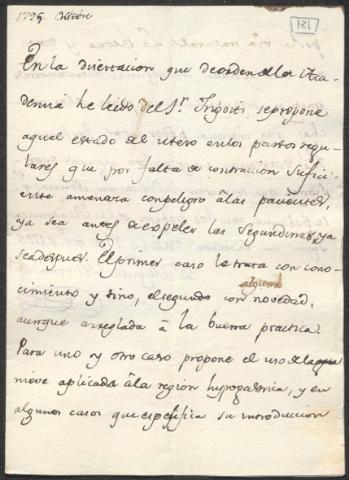 1795. Octubre
181
En la disertacion que de orden de la Aca-
demia he leido del Sr. Ingosti se propone
aquel estado del utero en los partos regu-
lares que por falta de contracion sufici-
ente amenaza con peligro â las pacientes,
ya sea antes de expeler las segundinas, ya
sea despues. El primer caso le trata con cono-
cimiento y tino, el segundo con alguna novedad,
aunque arreglada â la buena practica.
Para uno y otro caso propone el uso de la
nieve aplicada â la region hypogastrica, y en
algunos casos que espesifica su introduccion